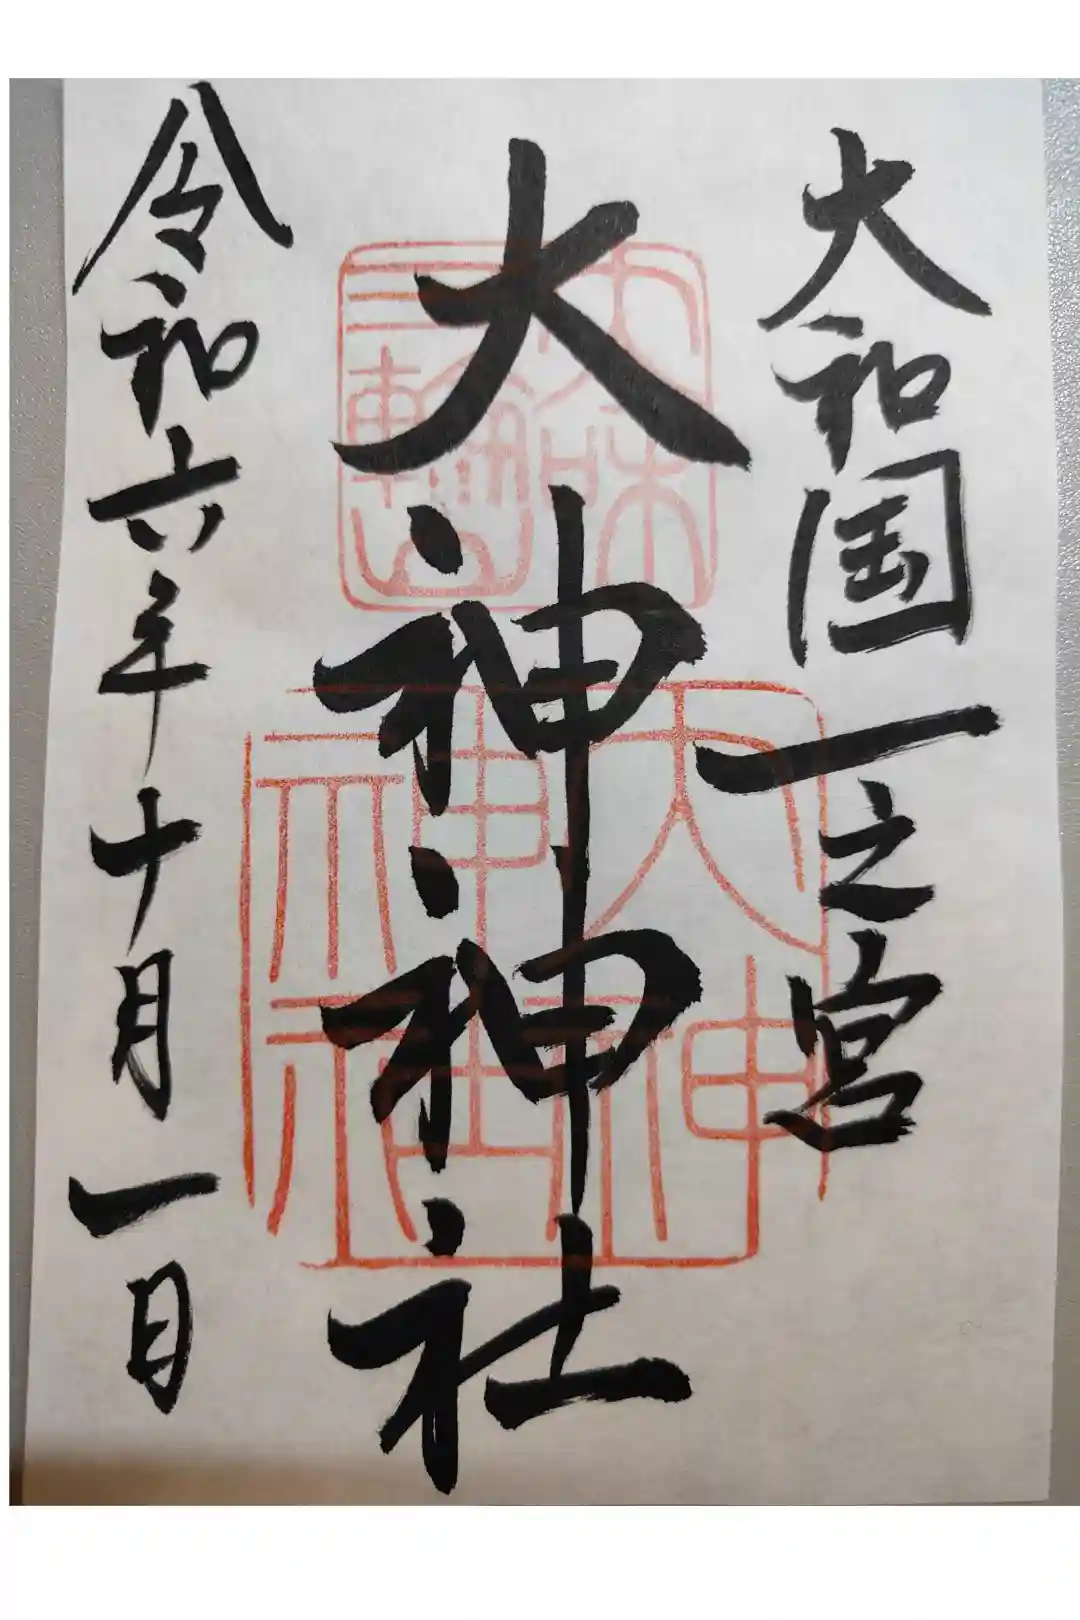 大和国一之宮
大神神社
令和六年十月一日
三輪山
大神神社